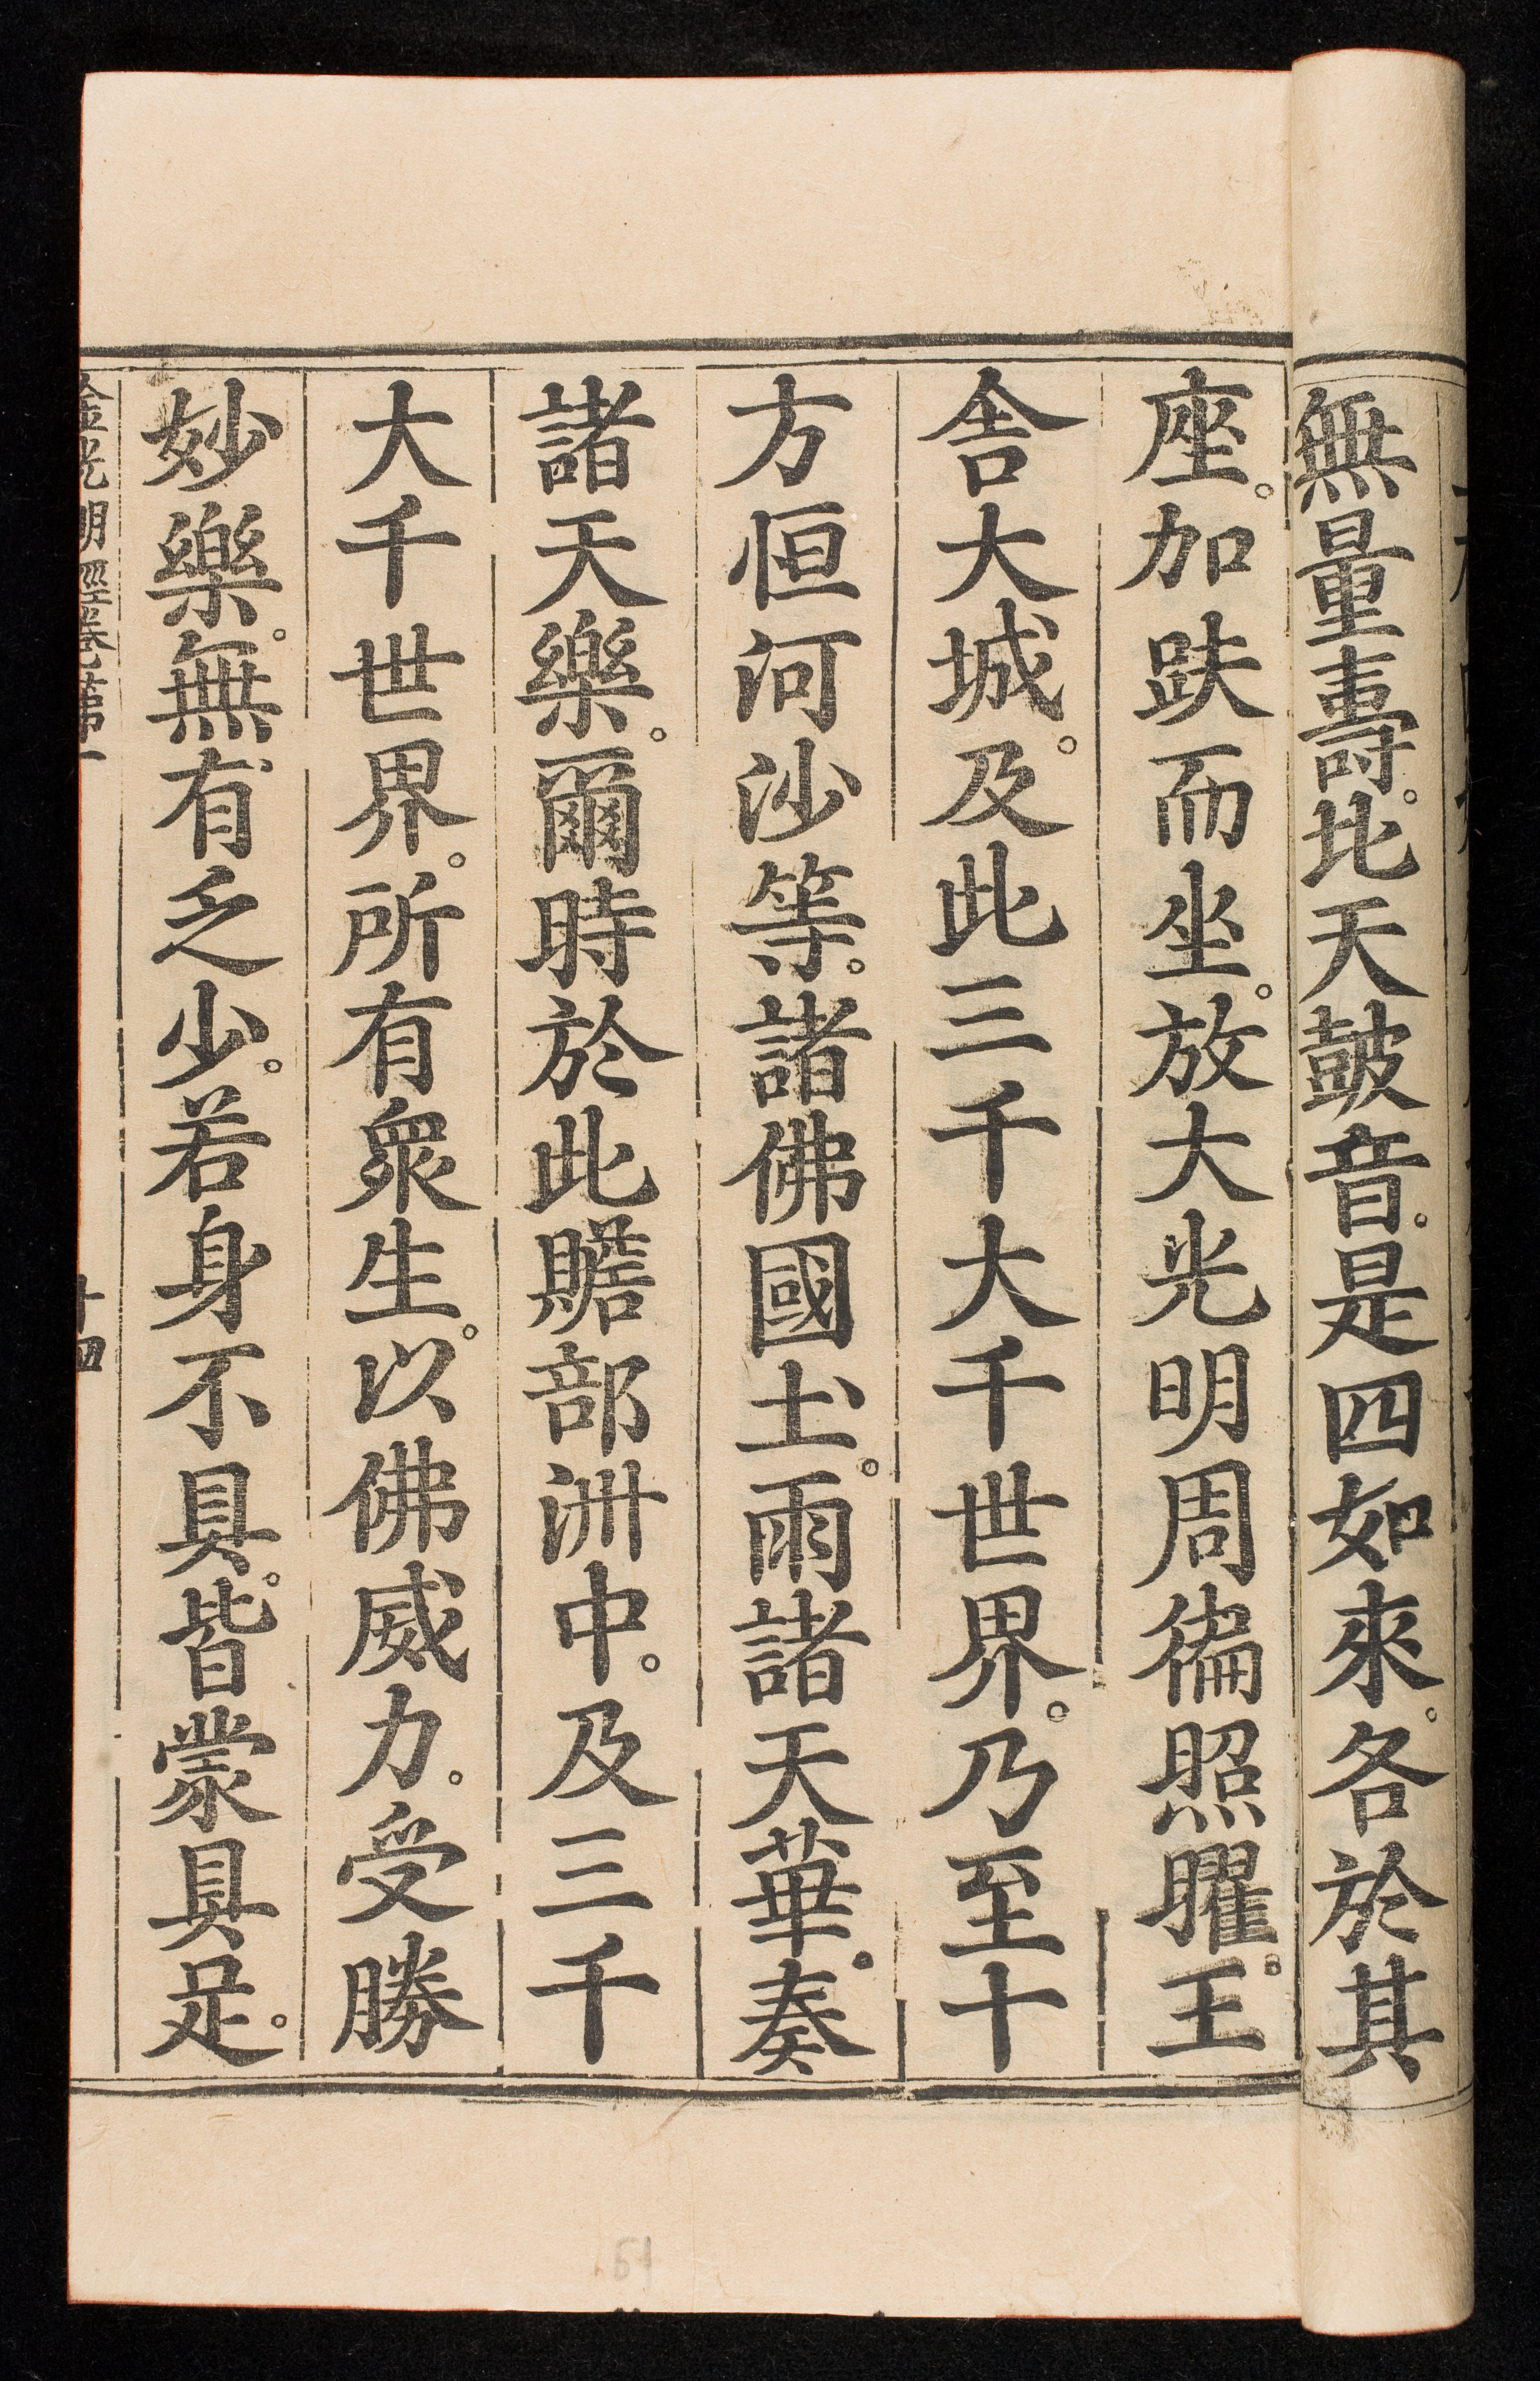 無量壽。北天鼓音。是四如來。各於其
座。加趺而坐。放大光明周徧照曜。王
舍大城。及此三千大千世界。乃至十
方恒河沙等。諸佛國土。雨諸天華。奏
諸天樂。爾時於此贍部洲中。及三千
大千世界。所有衆生。以佛威力。受勝
妙樂。無有乏少。若身不具。皆蒙具足。
金光明經卷第一 十四